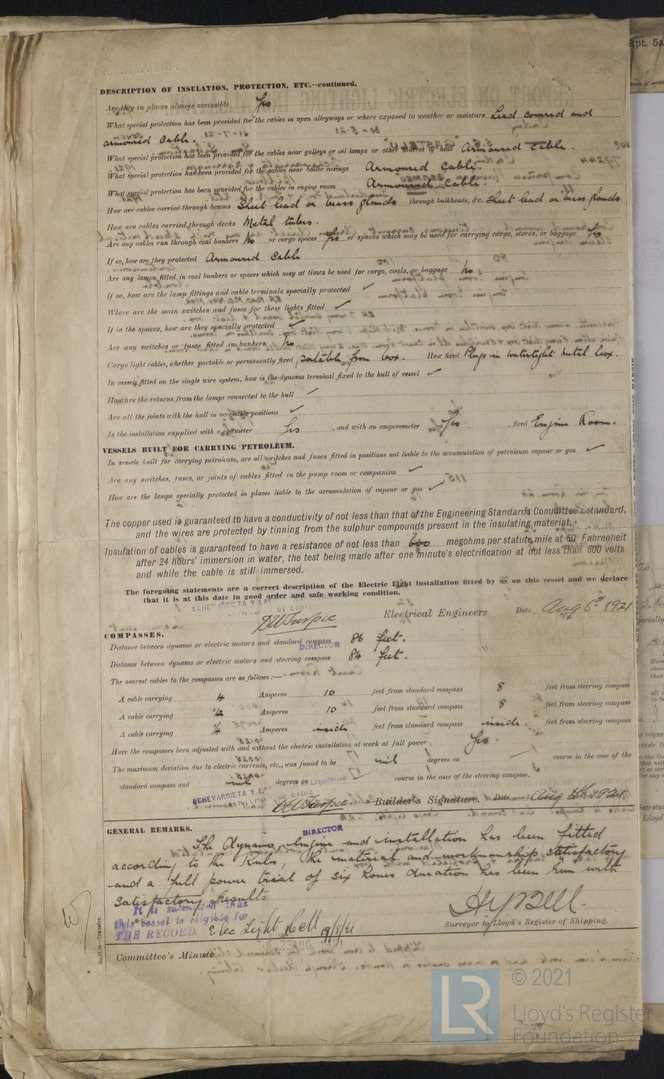 DESCRIPTION OF INSULATION, PROTECTION, ETC.—continued.
Are they in places always accessible Yes
What special protection has been provided for the cables in open alleyways or where exposed to weather or moisture Lead covered and
armoured cable.
What special protection has been provided for the cables near galleys or oil lamps or other sources of heat Armoured cable.
What special protection has been provided for the cables near boiler casings Armoured cable.
What special protection has been provided for the cables in engine room Armoured cable.
How are cables carried through beams Sheet lead or brass glands through bulkheads, &c. Sheet lead or brass glands
How are cables carried through decks Metal tubes.
Are any cables run through coal bunkers No or cargo spaces Yes or spaces which may be used for carrying cargo, stores, or baggage Yes
If so, how are they protected Armoured cable
Are any lamps fitted in coal bunkers or spaces which may at times be used for cargo, coals, or baggage No
If so, how are the lamp fittings and cable terminals specially protected ✓
Where are the main switches and fuses for these lights fitted ✓
If in the spaces, how are they specially protected ✓
Are any switches or fuses fitted in bunkers No
Cargo light cables, whether portable or permanently fixed portable from box. How fixed Plugs in watertight metal box.
In vessels fitted on the single wire system, how is the dynamo terminal fixed to the hull of vessel ✓
How are the returns from the lamps connected to the hull ✓
Are all the joints with the hull in accessible positions ✓
Is the installation supplied with a voltmeter Yes and with an amperemeter Yes , fixed Engine Room.
VESSELS BUILT FOR CARRYING PETROLEUM.
In vessels built for carrying petroleum, are all switches and fuses fitted in positions not liable to the accumulation of petroleum vapour or gas ✓
Are any switches, fuses, or joints of cables fitted in the pump room or companion ✓
How are the lamps specially protected in places liable to the accumulation of vapour or gas ✓
The copper used is guaranteed to have a conductivity of not less than that of the Engineering Standards Committee's standard,
and the wires are protected by tinning from the sulphur compounds present in the insulating material.
Insulation of cables is guaranteed to have a resistance of not less than 600 megohms per statute mile at 60° Fahrenheit
after 24 hours' immersion in water, the test being made after one minute's electrification at not less than 500 volts
and while the cable is still immersed.
The foregoing statements are a correct description of the Electric Light installation fitted by us on this vessel and we declare
that it is at this date in good order and safe working condition.
ECHEVARRIETA Y
Electrical Engineers Date Aug 6th 1921
DIRECTOR
COMPASSES.
Distance between dynamo or electric motors and standard compass 86 feet.
Distance between dynamo or electric motors and steering compass 84 feet.
The nearest cables to the compasses are as follows:—
A cable carrying 4 Amperes 10 feet from standard compass 8 feet from steering compass
A cable carrying Amperes 10 feet from standard compass 8 feet from steering compass
A cable carrying Amperes inside feet from standard compass inside. feet from steering compass
Have the compasses been adjusted with and without the electric installation at work at full power Yes.
The maximum deviation due to electric currents, etc., was found to be nil degrees on course in the case of the
standard compass and nil degrees on course in the case of the steering compass.
ECHEVARRIETA Y
Builder's Signature. Date Aug 1921.
DIRECTOR
GENERAL REMARKS.
The Dynamo, Engine and installation has been fitted
according to the Rules, the material and workmanship satisfactory
and a full power trial of six hours duration has been run with
satisfactory results
It is submitted that
this vessel is eligible for
THE RECORD. Elec Light
Surveyor to Lloyd's Register of Shipping.
Committee's Minute
© 2021
LR
Lloyd's Register
Foundation